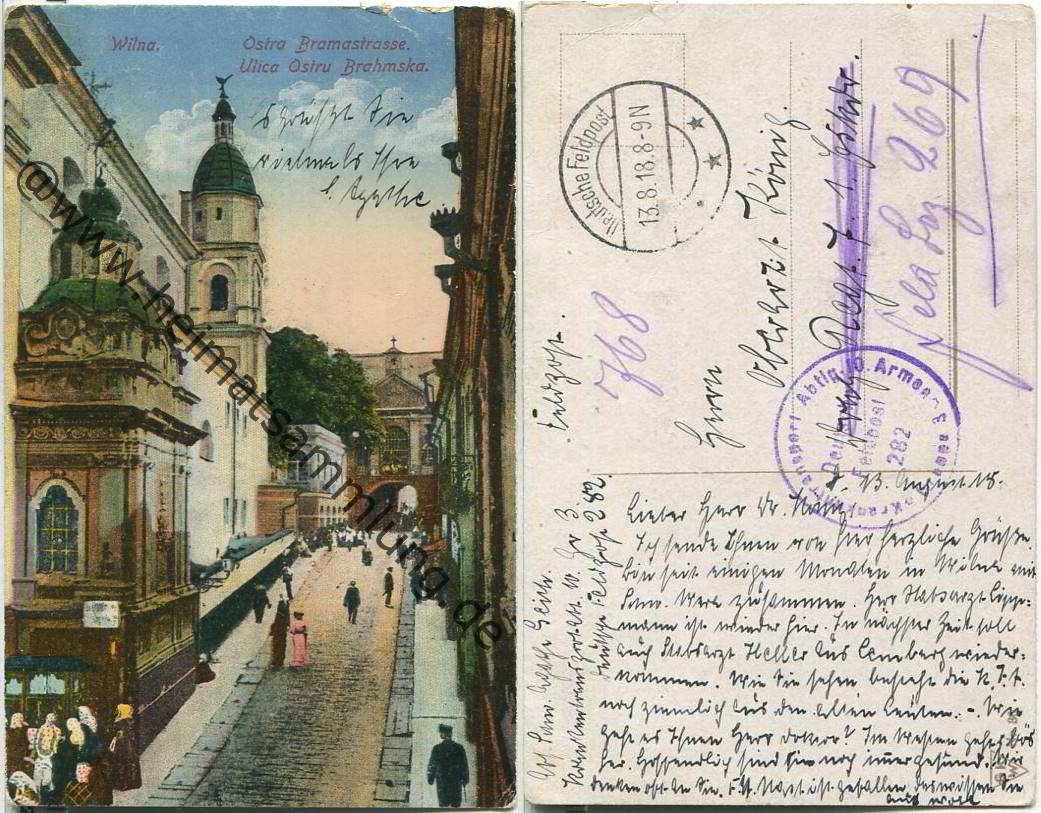 Wilna.
Ostra Bramastrasse.
Ulica Ostru Brahmska.
Es grüßt Sie
vielmals Ihre
Agathe.
@www.heimatsammlung.de
Deutsche Feldpost
13.8.18.8-9N
Feldpost.
768
Herrn
Oberarzt König.
Regt. 7.
Feld Laz 269
Krankentransport Abtlg. d. Armee
Deutsche
Feldpost
282
13. August 18.
Lieber Herr Dr. König
Ich sende Ihnen von hier herzliche Grüße.
bin seit einigen Monaten in Wilna mit
Schw. zusammen. Herr Stabsarzt Lippe-
mann ist wieder hier. In nächster Zeit soll
auch Stabsarzt Heller aus Lemberg wieder-
kommen. Wie Sie sehen besteht die K.T.A.
noch ziemlich aus den alten Leuten. - Wie
geht es Ihnen Herr Doktor? Im Westen geht es bös
her. Hoffentlich sind Sie noch immer gesund. Wir
denken oft an Sie. ist gefallen, das wissen Sie
wohl
Schw. Agathe
Deutsche Feldpost 282.